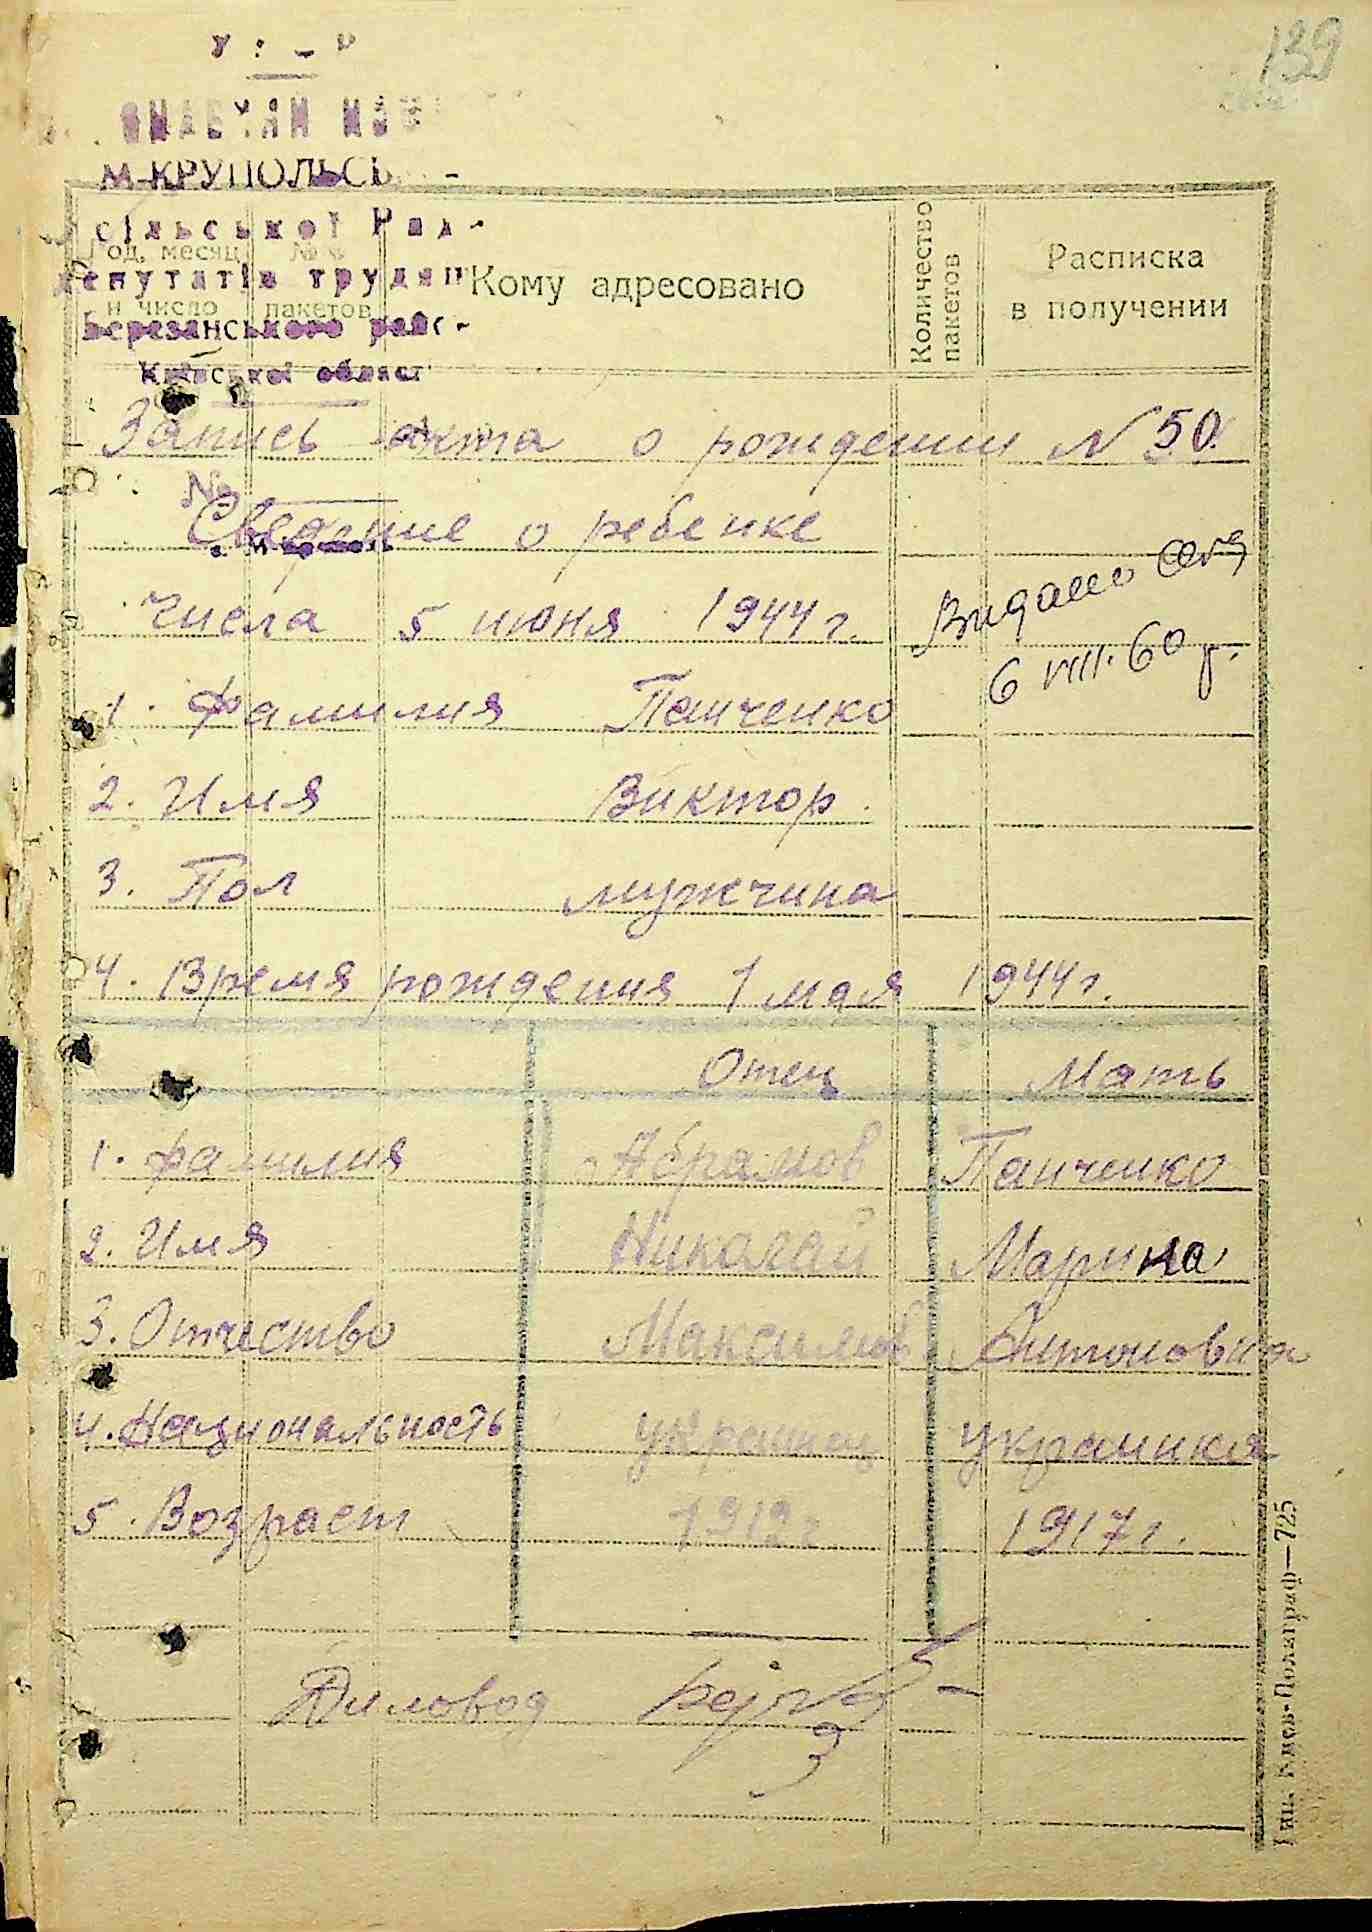 139
М-КРУПОЛЬСЬ
сільської Рад-
депутатів трудящ
Березанського райо-
Київської област
Год, месяц и число
№№ пакетов
Кому адресовано
Количество пакетов
Расписка в получении
Запись акта о рождении N 50.
№
Сведение о ребенке
Числа 5 июня 1944 г.
Видано
6 VIII. 60 р.
1. Фамилия Панченко
2. Имя Виктор.
3. Пол мужчина
4. Время рождения 1 мая 1944 г.
Отец Мать
1. фамилия Абрамов Панченко
2. Имя Николай Марина
3. Отчество Максимов Антоновна
4. Национальность украинец украинка
5. Возраст 1912 г. 1917 г.
Діловод
Тип. Киев-Полиграф—725